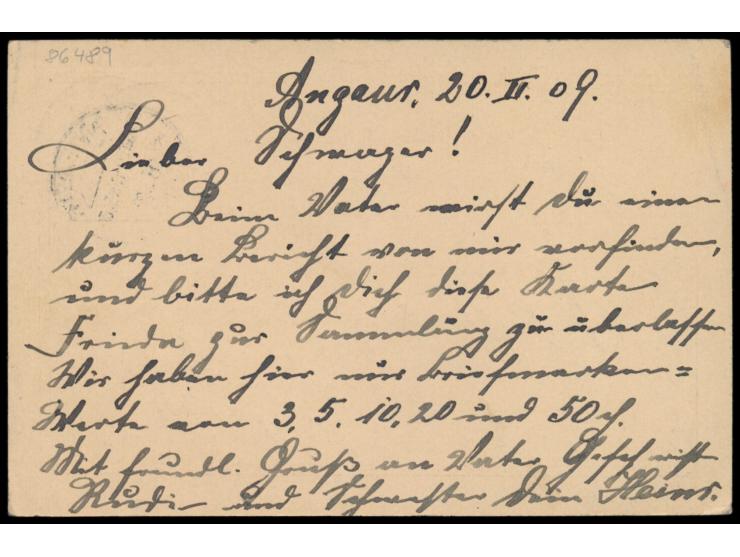 86489
Angaur, 20. II. 09.
Lieber Schwager!
Beim Vater wirst Du einen
kurzen Bericht von mir vorfinden,
und bitte ich Dich diese Karte
Frieda zur Sammlung zu überlassen
Wir haben hier nur Briefmarken=
Werte von 3, 5. 10, 20 und 50 ch.
Mit freundl. Gruß an Vater
Rudi und Schwester Dein Heinr.